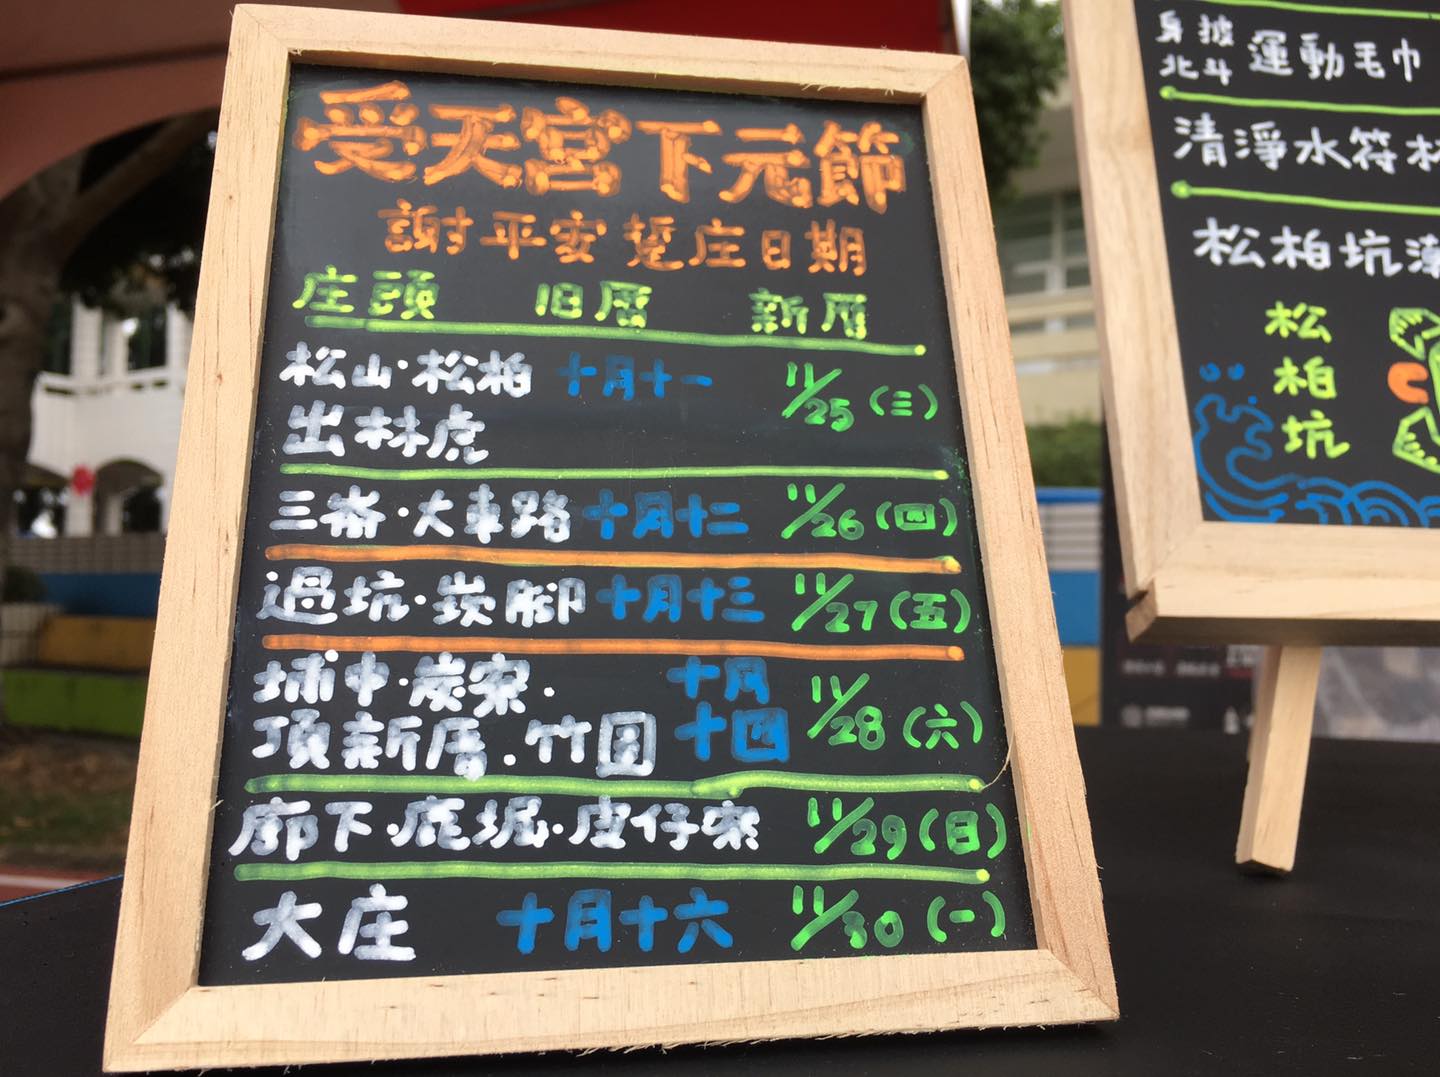 受天宮下元節
謝平安踅庄日期
庄頭 旧曆 新曆
松山·松柏 十月十一 11/25(三)
出林虎
三崙·大車路 十月十二 11/26(四)
過坑·崁腳 十月十三 11/27(五)
埔中·炭寮· 十月 11/28(六)
頂新厝·竹囝 十四
廍下·鹿堀·皮仔寮 11/29(日)
大庄 十月十六 11/30(一)
身披
北斗 運動毛巾
清淨水符
松柏坑
松
柏
坑